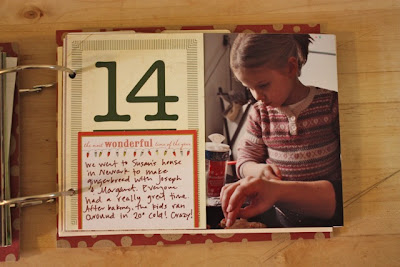 14
the most wonderful time of the year
We went to Susan's house
in Newark to make
gingerbread with Joseph
& Margaret. Everyone
had a really great time.
After baking, the kids ran
around in 20° cold! Crazy!